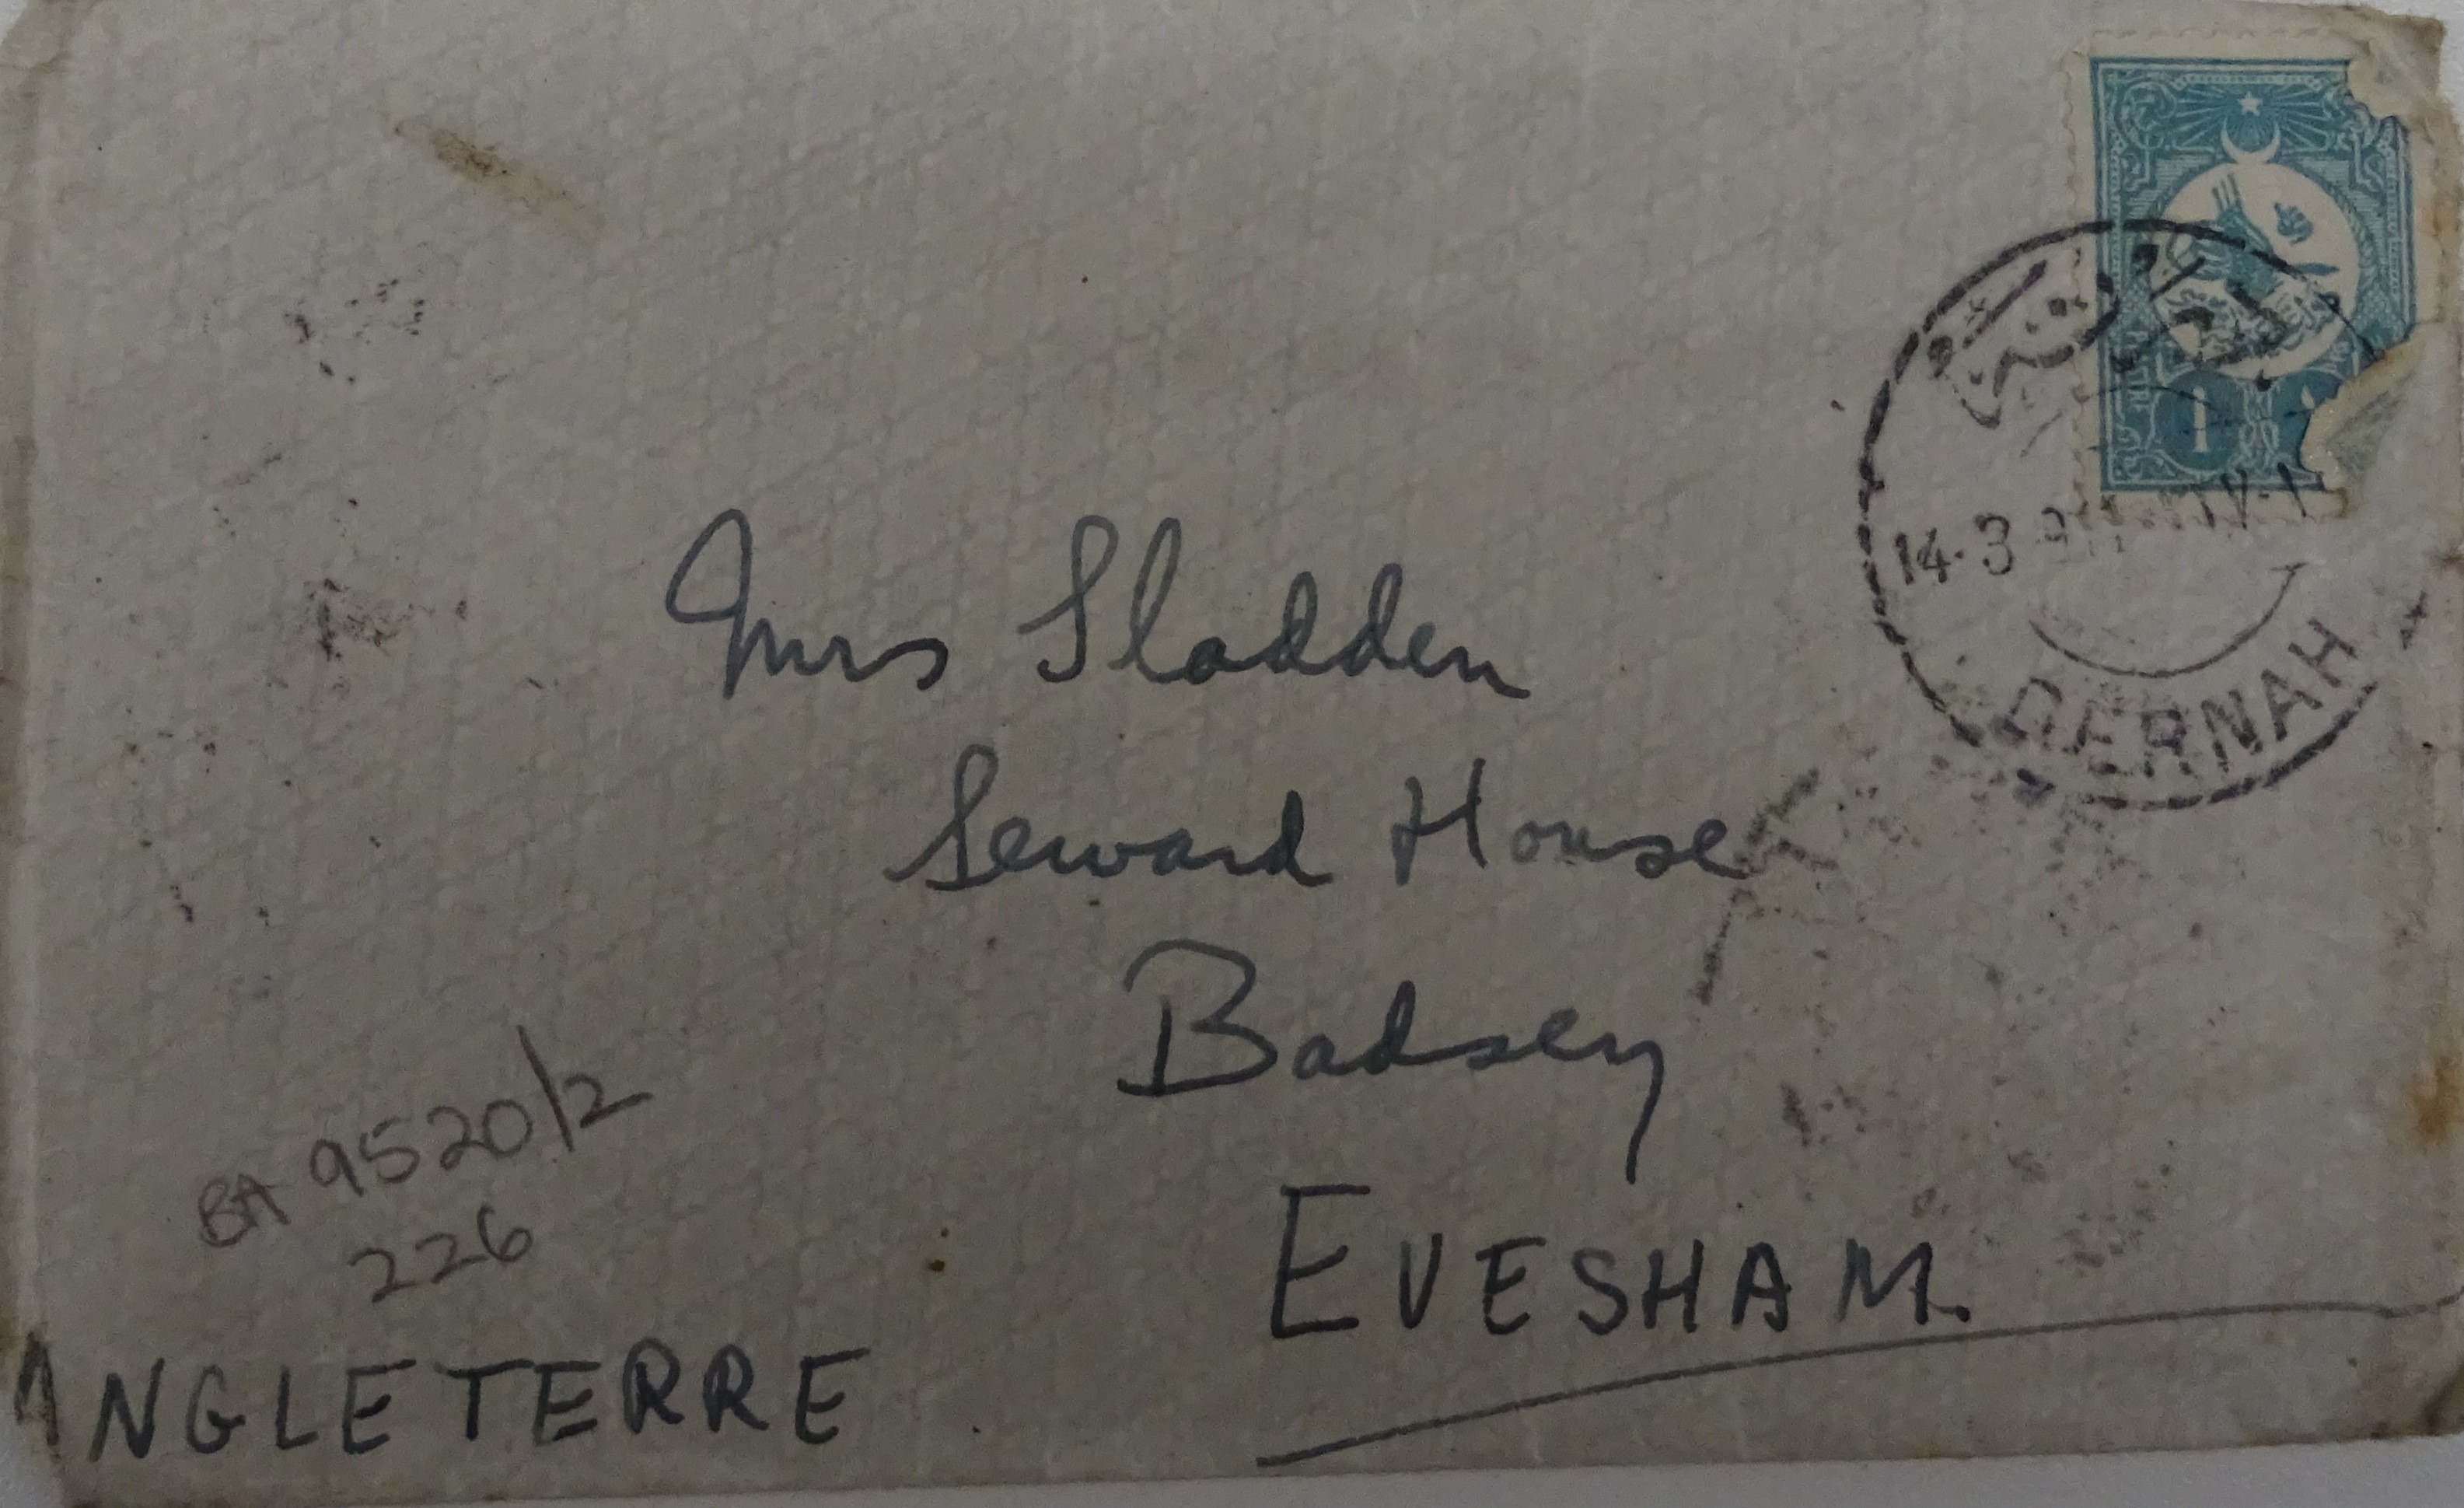 1
14.3
DERNAH
Mrs Sladden
Seward House
Badsey
EVESHAM.
BA 9520/2
226
ANGLETERRE